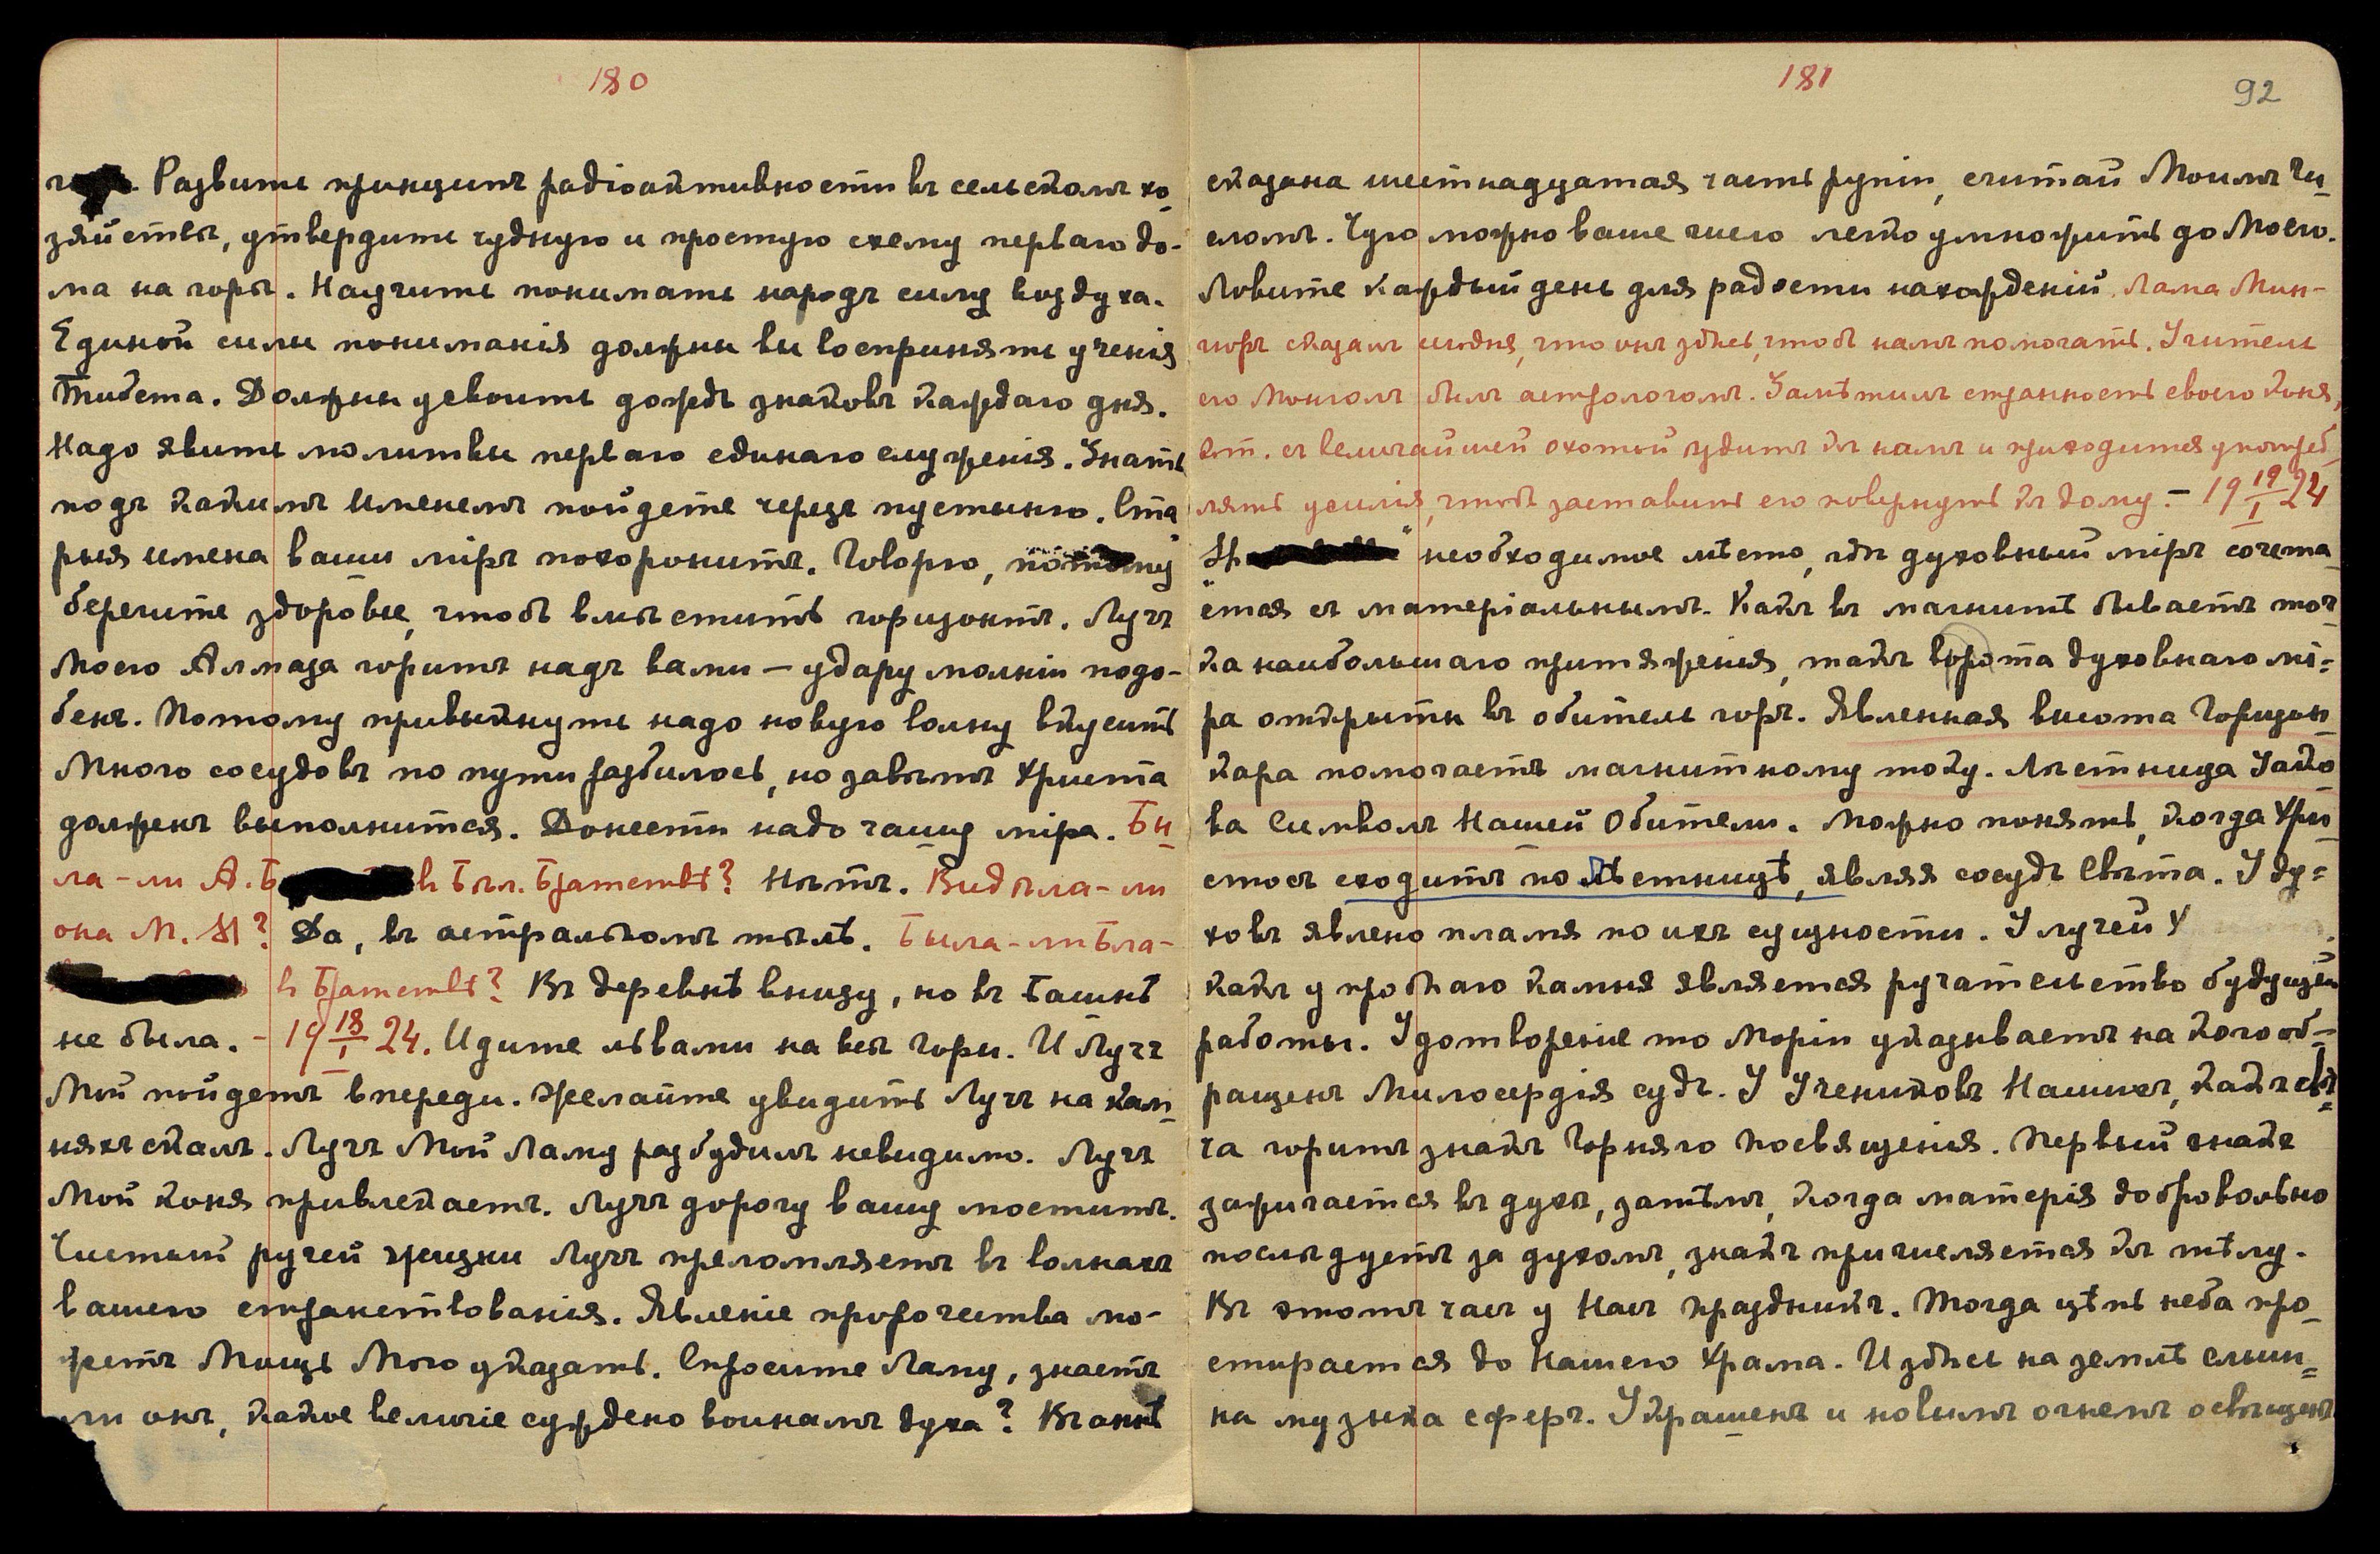 180
Развить принципъ радіоактивности въ сельскомъ хо-
зяйствѣ, утвердить чудную и простую схему перваго до-
ма на горѣ. Научить понимать народъ силу воздуха.
Единой силы пониманія должны вы воспринять ученія
Тибета. Должны усвоить дождь знаковъ каждаго дня.
Надо явить молитвы перваго единаго служенія. Знать
подъ какимъ именемъ пойдете черезъ пустыню. Ста-
рыя имена ваши міръ похоронитъ. Говорю, потому
берегите здоровье, чтобъ вмѣстить горизонтъ. Лучъ
Моего Алмаза горитъ надъ вами — удару молніи подо-
бенъ. Потому привыкнуть надо новую волну вкусить
Много сосудовъ по пути разбилось, но завѣтъ Христа
долженъ выполнится. Донести надо чашу міра. Бы-
ла-ли А. Б въ Бѣл. Братствѣ? Нѣтъ. Видѣла-ли
она М. М? Да, въ астральномъ тѣлѣ. Была-ли Бла-
в Братствѣ? Въ деревнѣ внизу, но въ Башнѣ
не была. - 19 18/I 24. Идите львами на всѣ горы. И Лучъ
Мой пойдетъ впереди. Желайте увидить Лучъ на кам-
няхъ скалъ. Лучъ Мой Ламу разбудилъ невидимо. Лучъ
Мой коня привлекаетъ. Лучъ дорогу вашу моститъ.
Чистый ручей жизни Лучъ преломляетъ въ волнахъ
вашего странствованія. Явленіе пророчества мо-
жетъ Мощь Мою указать. Спросите Ламу, знаетъ
ли онъ, какое величіе суждено воинамъ духа? Въ окнѣ
181
92
сказана шестнадцатая часть рупіи, считай Моимъ Чи-
сломъ. Чую можно ваше число легко умножить до Моего.
Ловите каждый день для радости нахожденій. Лама Мин-
гюръ сказалъ сегодня, что онъ здѣсь, чтобъ намъ помогать. Учитель
его Монголъ былъ астрологомъ. Замѣтилъ странность своего коня,
кот. съ величайшей охотой идитъ къ намъ и приходится употреб-
лять усилія, чтобъ заставить его повернуть къ дому. - 19 19/I 24
необходимое мѣсто, гдѣ духовный міръ сочета-
ется съ матеріальнымъ. Какъ въ магнитѣ бываетъ точ-
ка наибольшаго притяженія, такъ ворота духовнаго мі-
ра открыты въ обитель горъ. Явленная высота Горизон-
кара помогаетъ магнитному току. Лѣстница Іако-
ва Символъ Нашей Обители. Можно понять, когда Хри-
стосъ сходитъ по лѣстницѣ, являя сосудъ Свѣта. У ду-
ховъ явлено пламя по ихъ сущности. У лучей У
какъ у пробнаго камня является ручательство будущей
работы. Удотвореніе то Моріи указываетъ на кого об-
ращенъ Милосердія судъ. У Учениковъ Нашихъ, какъ свѣ-
ча горитъ знакъ Горняго Посвященія. Первый знакъ
зажигается въ духѣ, затѣмъ, когда матерія добровольно
послѣдуетъ за духомъ, знакъ причисляется къ тѣлу.
Въ этотъ часъ у Насъ праздникъ. Тогда цѣпь неба про-
стирается до Нашего Храма. И здѣсь на землѣ слыш-
на музыка сферъ. Украшенъ и новымъ огнемъ освященъ